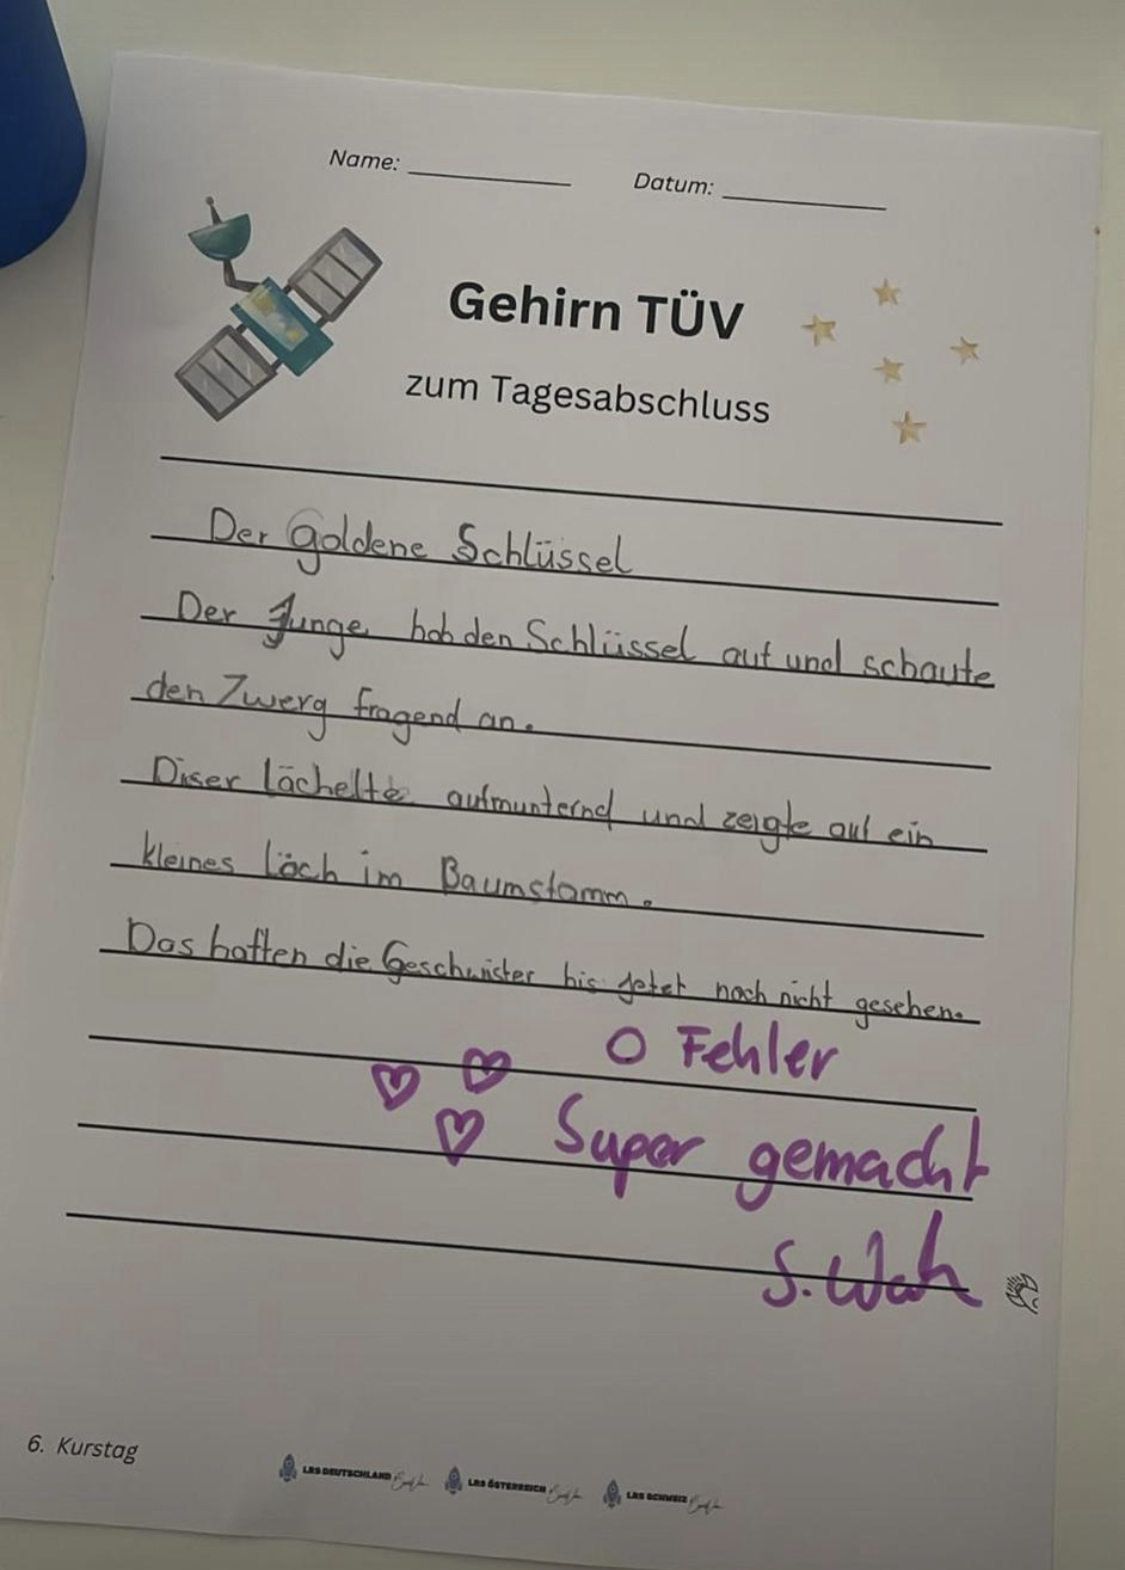 Name: Datum:
Gehirn TÜV
zum Tagesabschluss
Der goldene Schlüssel
Der Junge hob den Schlüssel auf und schaute
den Zwerg fragend an.
Diser lächelte aufmunternd und zeigte auf ein
kleines Löch im Baumstamm.
Das hatten die Geschwister bis jetzt noch nicht gesehen.
0 Fehler
Super gemacht
S. Wah
6. Kurstag
LRS DEUTSCHLAND LRS ÖSTERREICH LRS SCHWEIZ